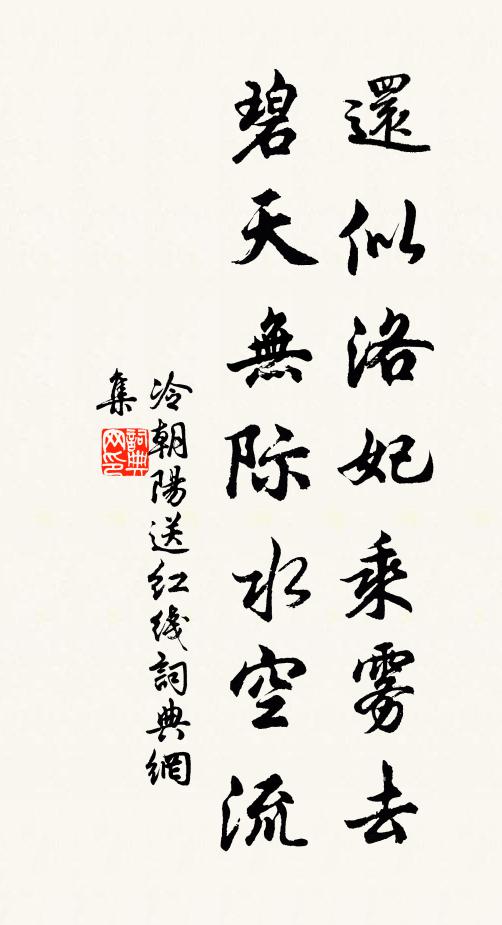 還似洛妃乘雾去
碧天無际水空流
冷朝陽送红线詞典網
集
詞典
网印